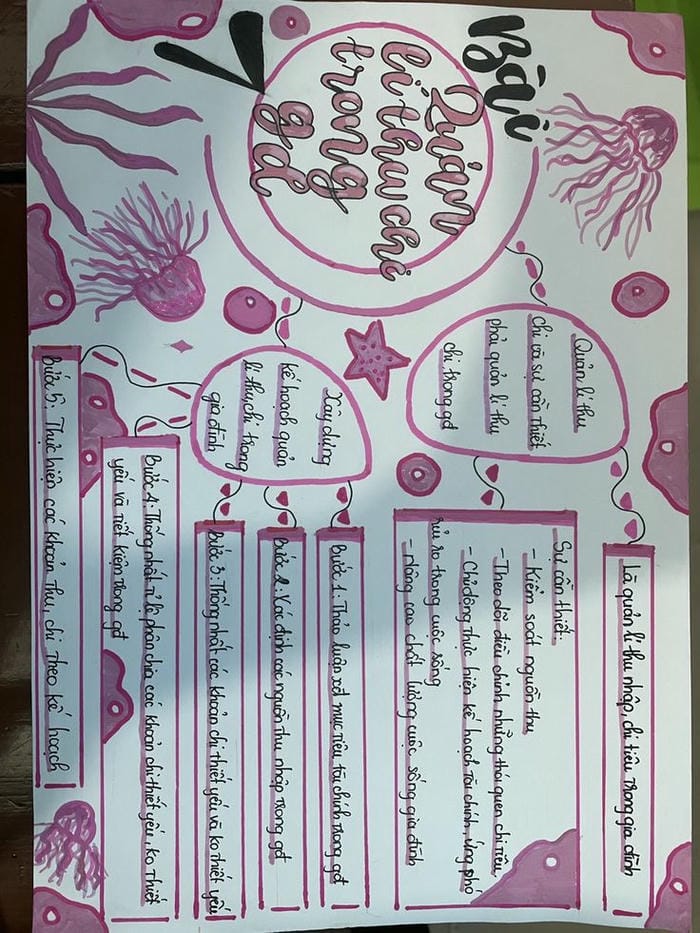 Bài
V
Quản
lí thu chi
trong
gd
Quản lí thu
chi và sự cần thiết
phải quản lí thu
chi trong gd
Là quản lí thu nhập, chi tiêu trong gia đình
Sự cần thiết:
- Kiểm soát nguồn thu
- Theo dõi điều chỉnh những thói quen chi tiêu
- Chủ động thực hiện kế hoạch tài chính, ứng phó
rủi ro trong cuộc sống
- Nâng cao chất lượng cuộc sống gia đình
Xây dựng
kế hoạch quản
lí thu chi trong
gia đình
Bước 1: Thảo luận xđ mục tiêu tài chính trong gd
Bước 2: Xác định các nguồn thu nhập trong gd
Bước 3: Thống nhất các khoản chi thiết yếu và ko thiết yếu
Bước 4: Thống nhất tỉ lệ phân chia các khoản chi thiết yếu, ko thiết
yếu và tiết kiệm trong gd
Bước 5: Thực hiện các khoản thu, chi theo kế hoạch